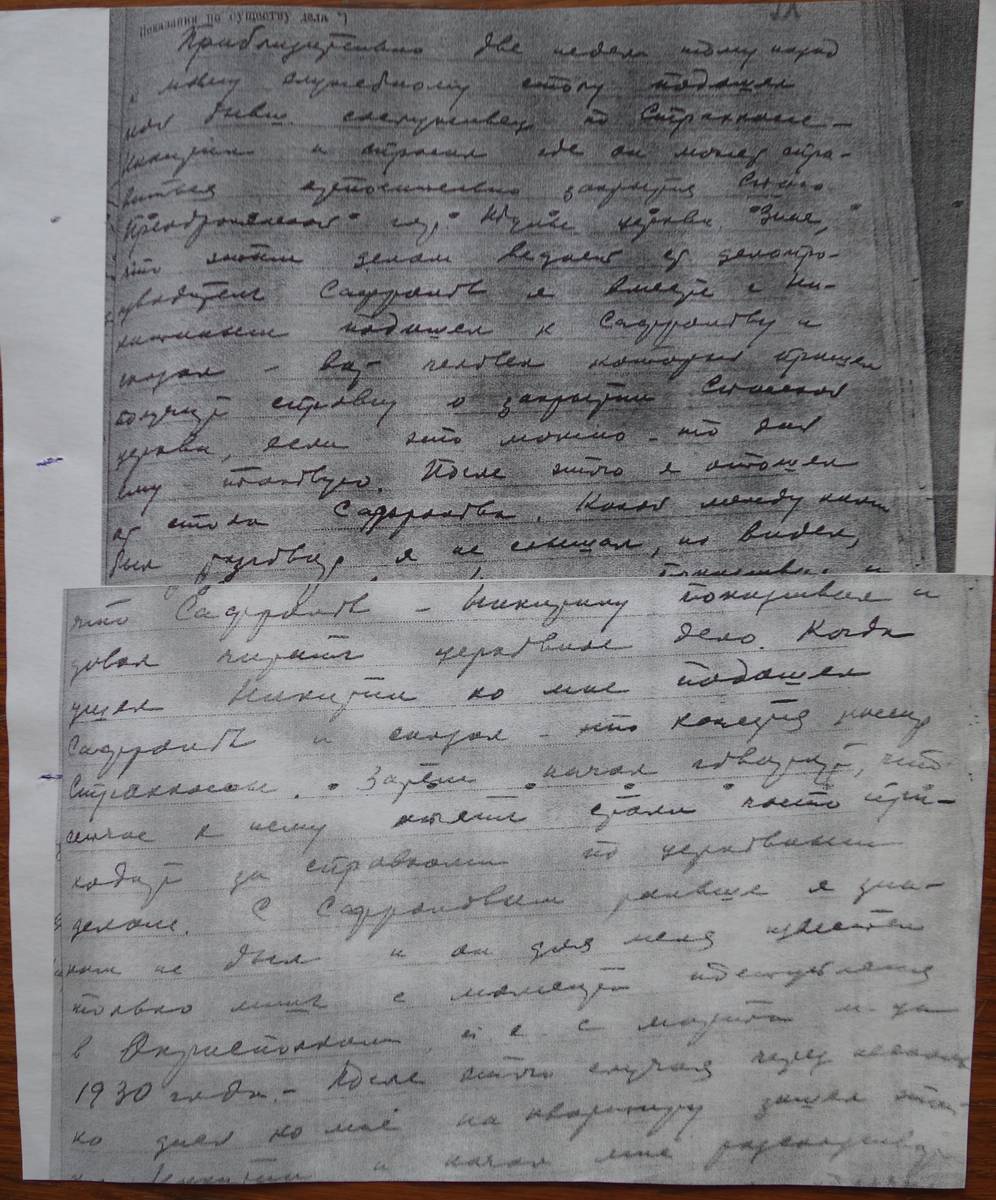 Показания по существу дела *)
Приблизительно две недели тому назад
к моему служебному столу подошел
мой бывш. сослуживец по Странноме-
Никитин и спросил где он может спра-
виться относительно закрытия Спасо
Преображенской церкви. Зная,
что этим делом ведает делопро-
изводитель Сафронов я вместе с Ни-
китиным подошел к Сафронову и
сказал - вот человек который пришел
получить справку о закрытии Спасской
церкви, если это можно - то дай
ему таковую. После этого я отошел
от стола Сафронова. Какой между ними
был разговор я не слышал, но видел,
что Сафронов - Никитину показывал и
давал читать церковное дело. Когда
ушел Никитин ко мне подошел
Сафронов и сказал - что кажется
Затем начал говорить, что
сейчас к нему стали часто при-
ходить за справками по церковным
делам. С Сафроновым раньше я зна-
ком не был и он для меня известен
только лишь с момента поступления
в Окрисполком, т.е. с марта м-ца
1930 года. - После этого случая через несколь-
ко дней ко мне на квартиру зашел этот
Никитин и начал мне